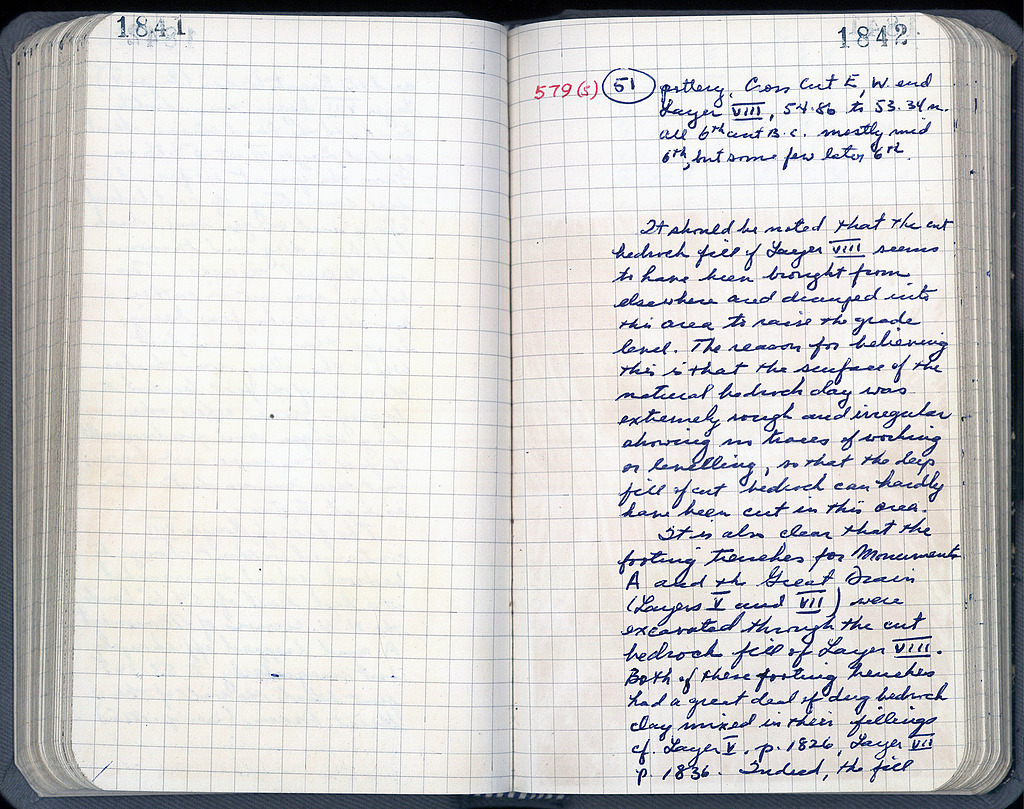 1841
1842
579(s) 51 pottery, Cross Cut E, W. end
Layer VIII, 54.86 to 53.34 m.
all 6th cent B.C. mostly mid
6th, but some few later 6th.
It should be noted that the cut
bedrock fill of Layer VIII seems
to have been brought from
elsewhere and dumped into
this area to raise the grade
level. The reason for believing
this is that the surface of the
natural bedrock clay was
extremely rough and irregular
showing no traces of working
or levelling, so that the deep
fill of cut bedrock can hardly
have been cut in this area.
It is also clear that the
footing trenches for Monuments
A and the Great Drain
(Layers V and VII) were
excavated through the cut
bedrock fill of Layer VIII.
Both of these footing trenches
had a great deal of dug bedrock
clay mixed in their fillings
cf. Layer V, p. 1826, Layer VII
p 1836. Indeed, the fill